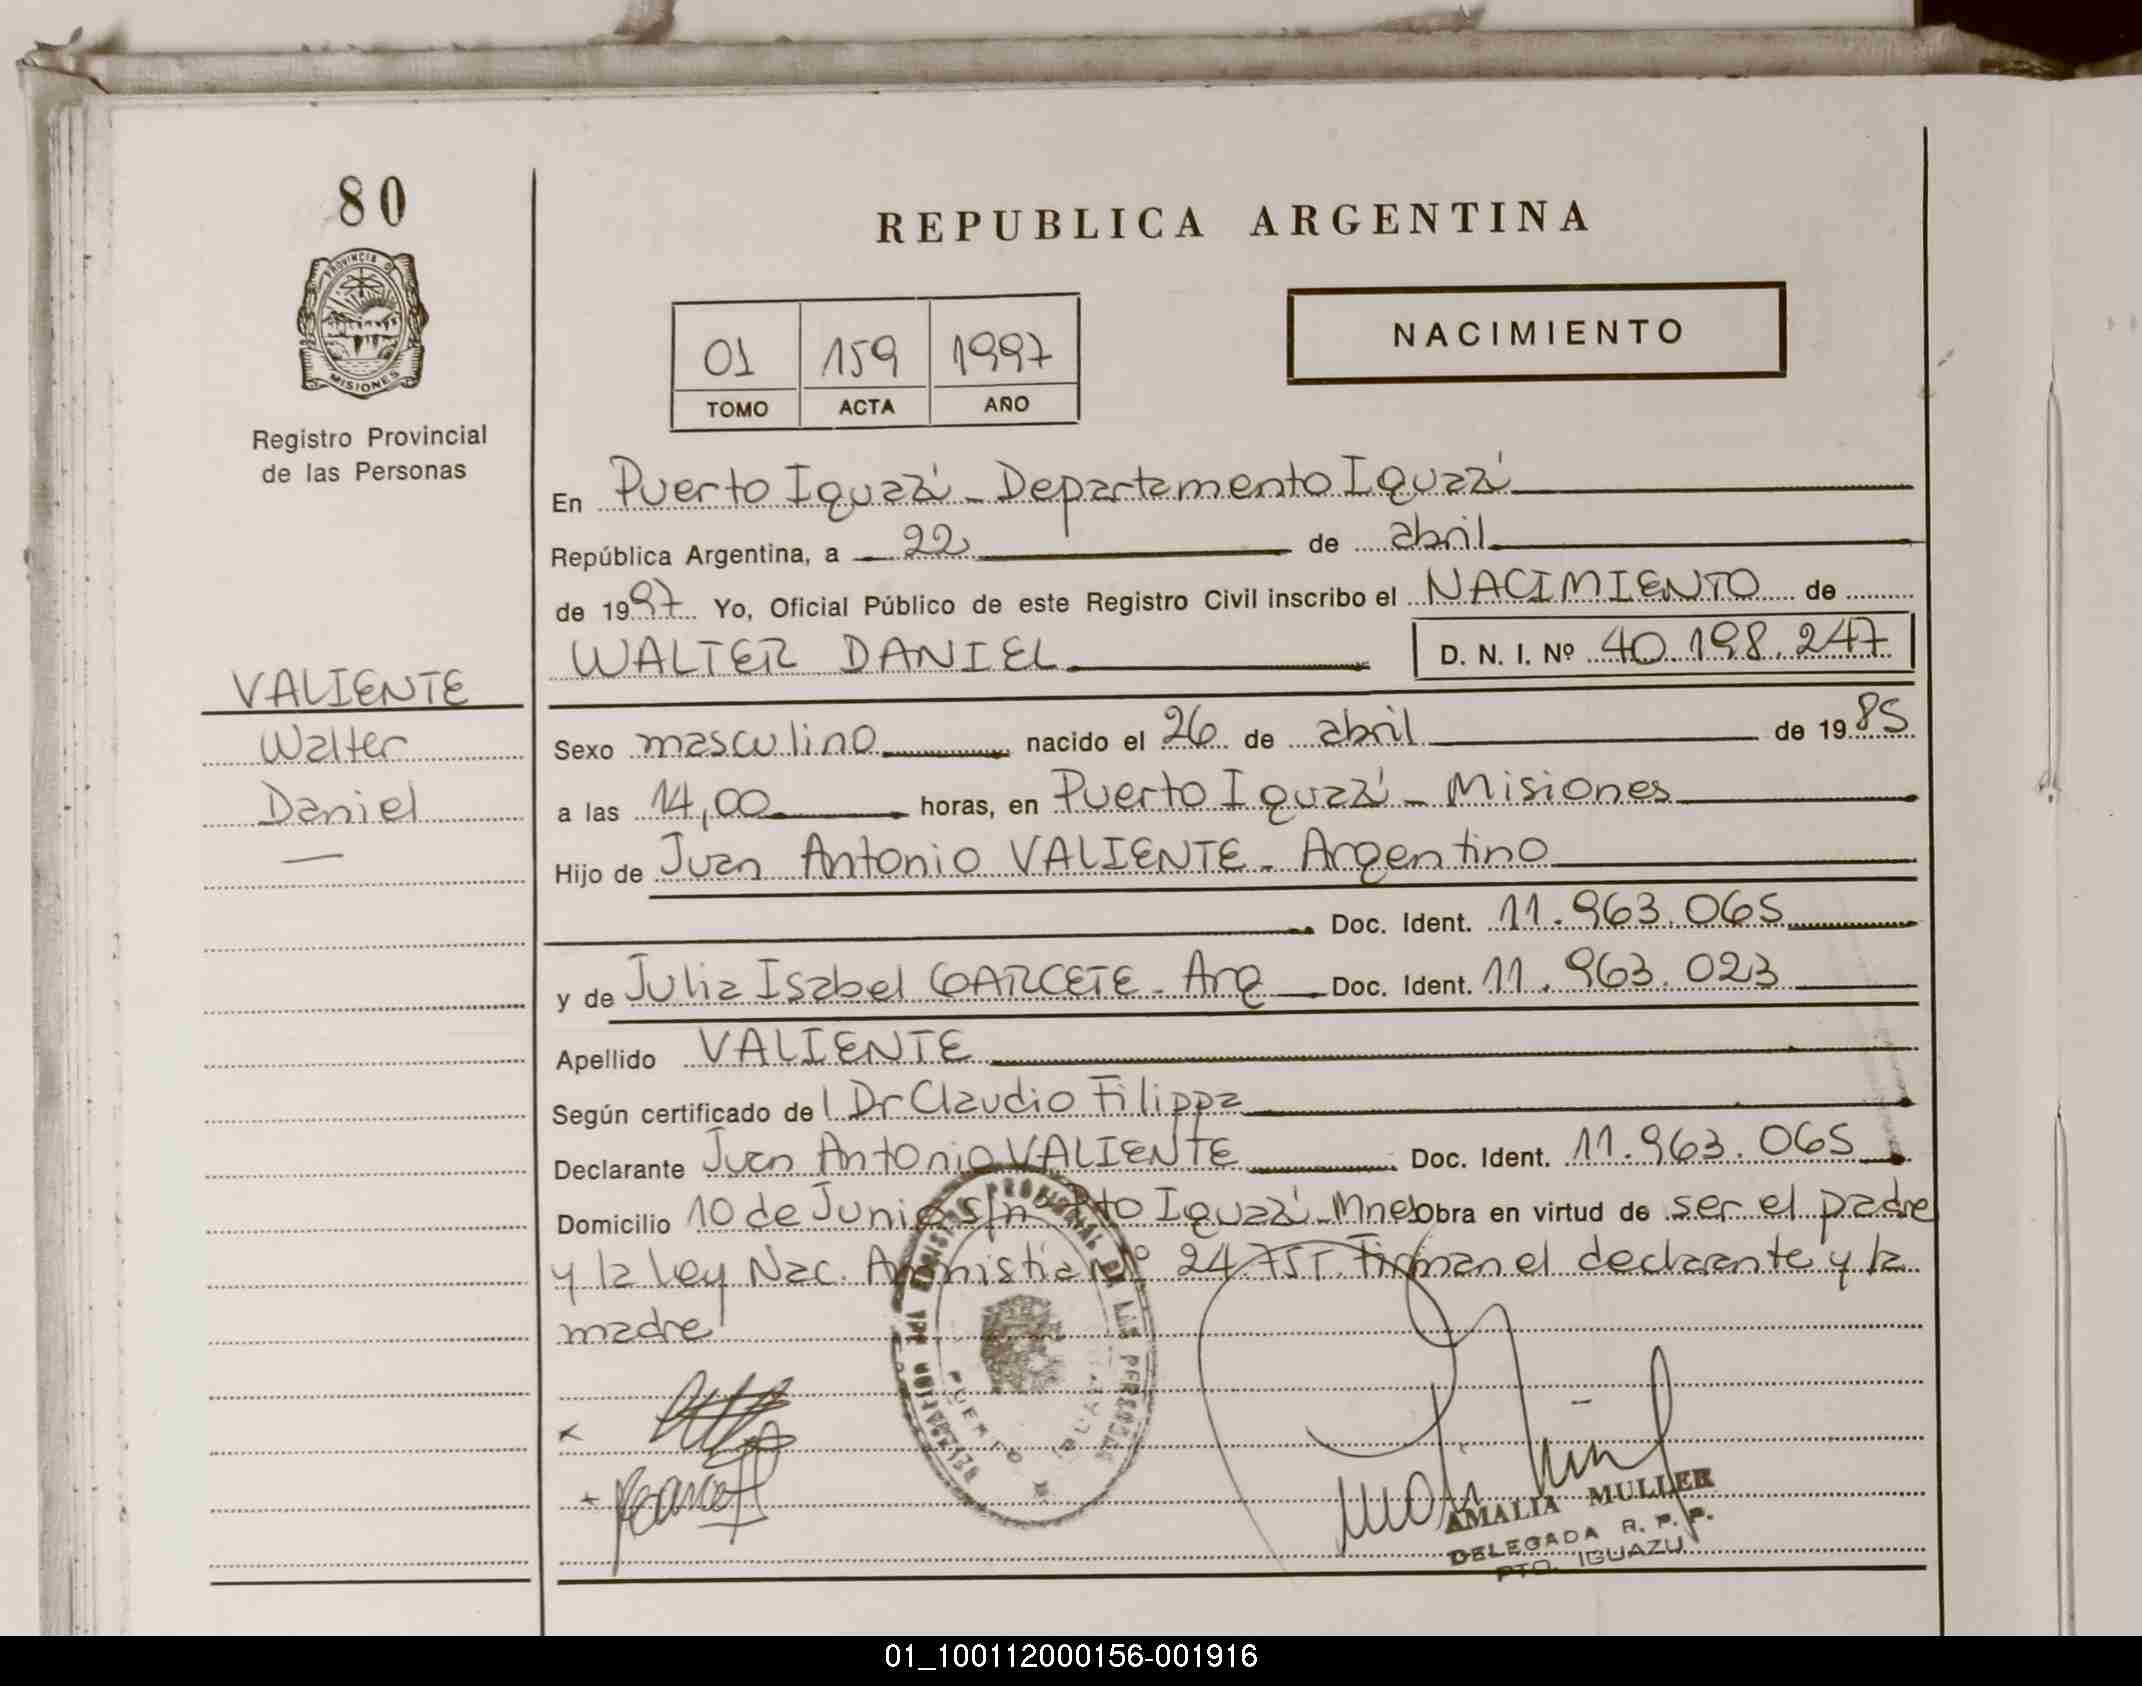 80
PROVINCIA DE
MISIONES
Registro Provincial
de las Personas
VALIENTE
Walter
Daniel
REPUBLICA ARGENTINA
01 159 1997
TOMO ACTA AÑO
NACIMIENTO
En Puerto Iguazú - Departamento Iguazú
República Argentina, a 22 de abril
de 1997 Yo, Oficial Público de este Registro Civil inscribo el NACIMIENTO de
WALTER DANIEL D. N. I. Nº 40.198.247
Sexo masculino nacido el 26 de abril de 1985
a las 14,00 horas, en Puerto Iguazú - Misiones
Hijo de Juan Antonio VALIENTE - Argentino
Doc. Ident. 11.963.065
y de Julia Isabel GARCETE - Arg Doc. Ident. 11.963.023
Apellido VALIENTE
Según certificado de l Dr Claudio Filippa
Declarante Juan Antonio VALIENTE Doc. Ident. 11.963.065
Domicilio 10 de Junio s/nº Pto Iguazú - Mnes Obra en virtud de ser el padre
y la Ley Nac. Amnistía Nº 24.755. Firman el declarante y la
madre
PUERTO IGUAZU
AMALIA MULLER
DELEGADA R. P. P.
PTO. IGUAZU
01_100112000156-001916